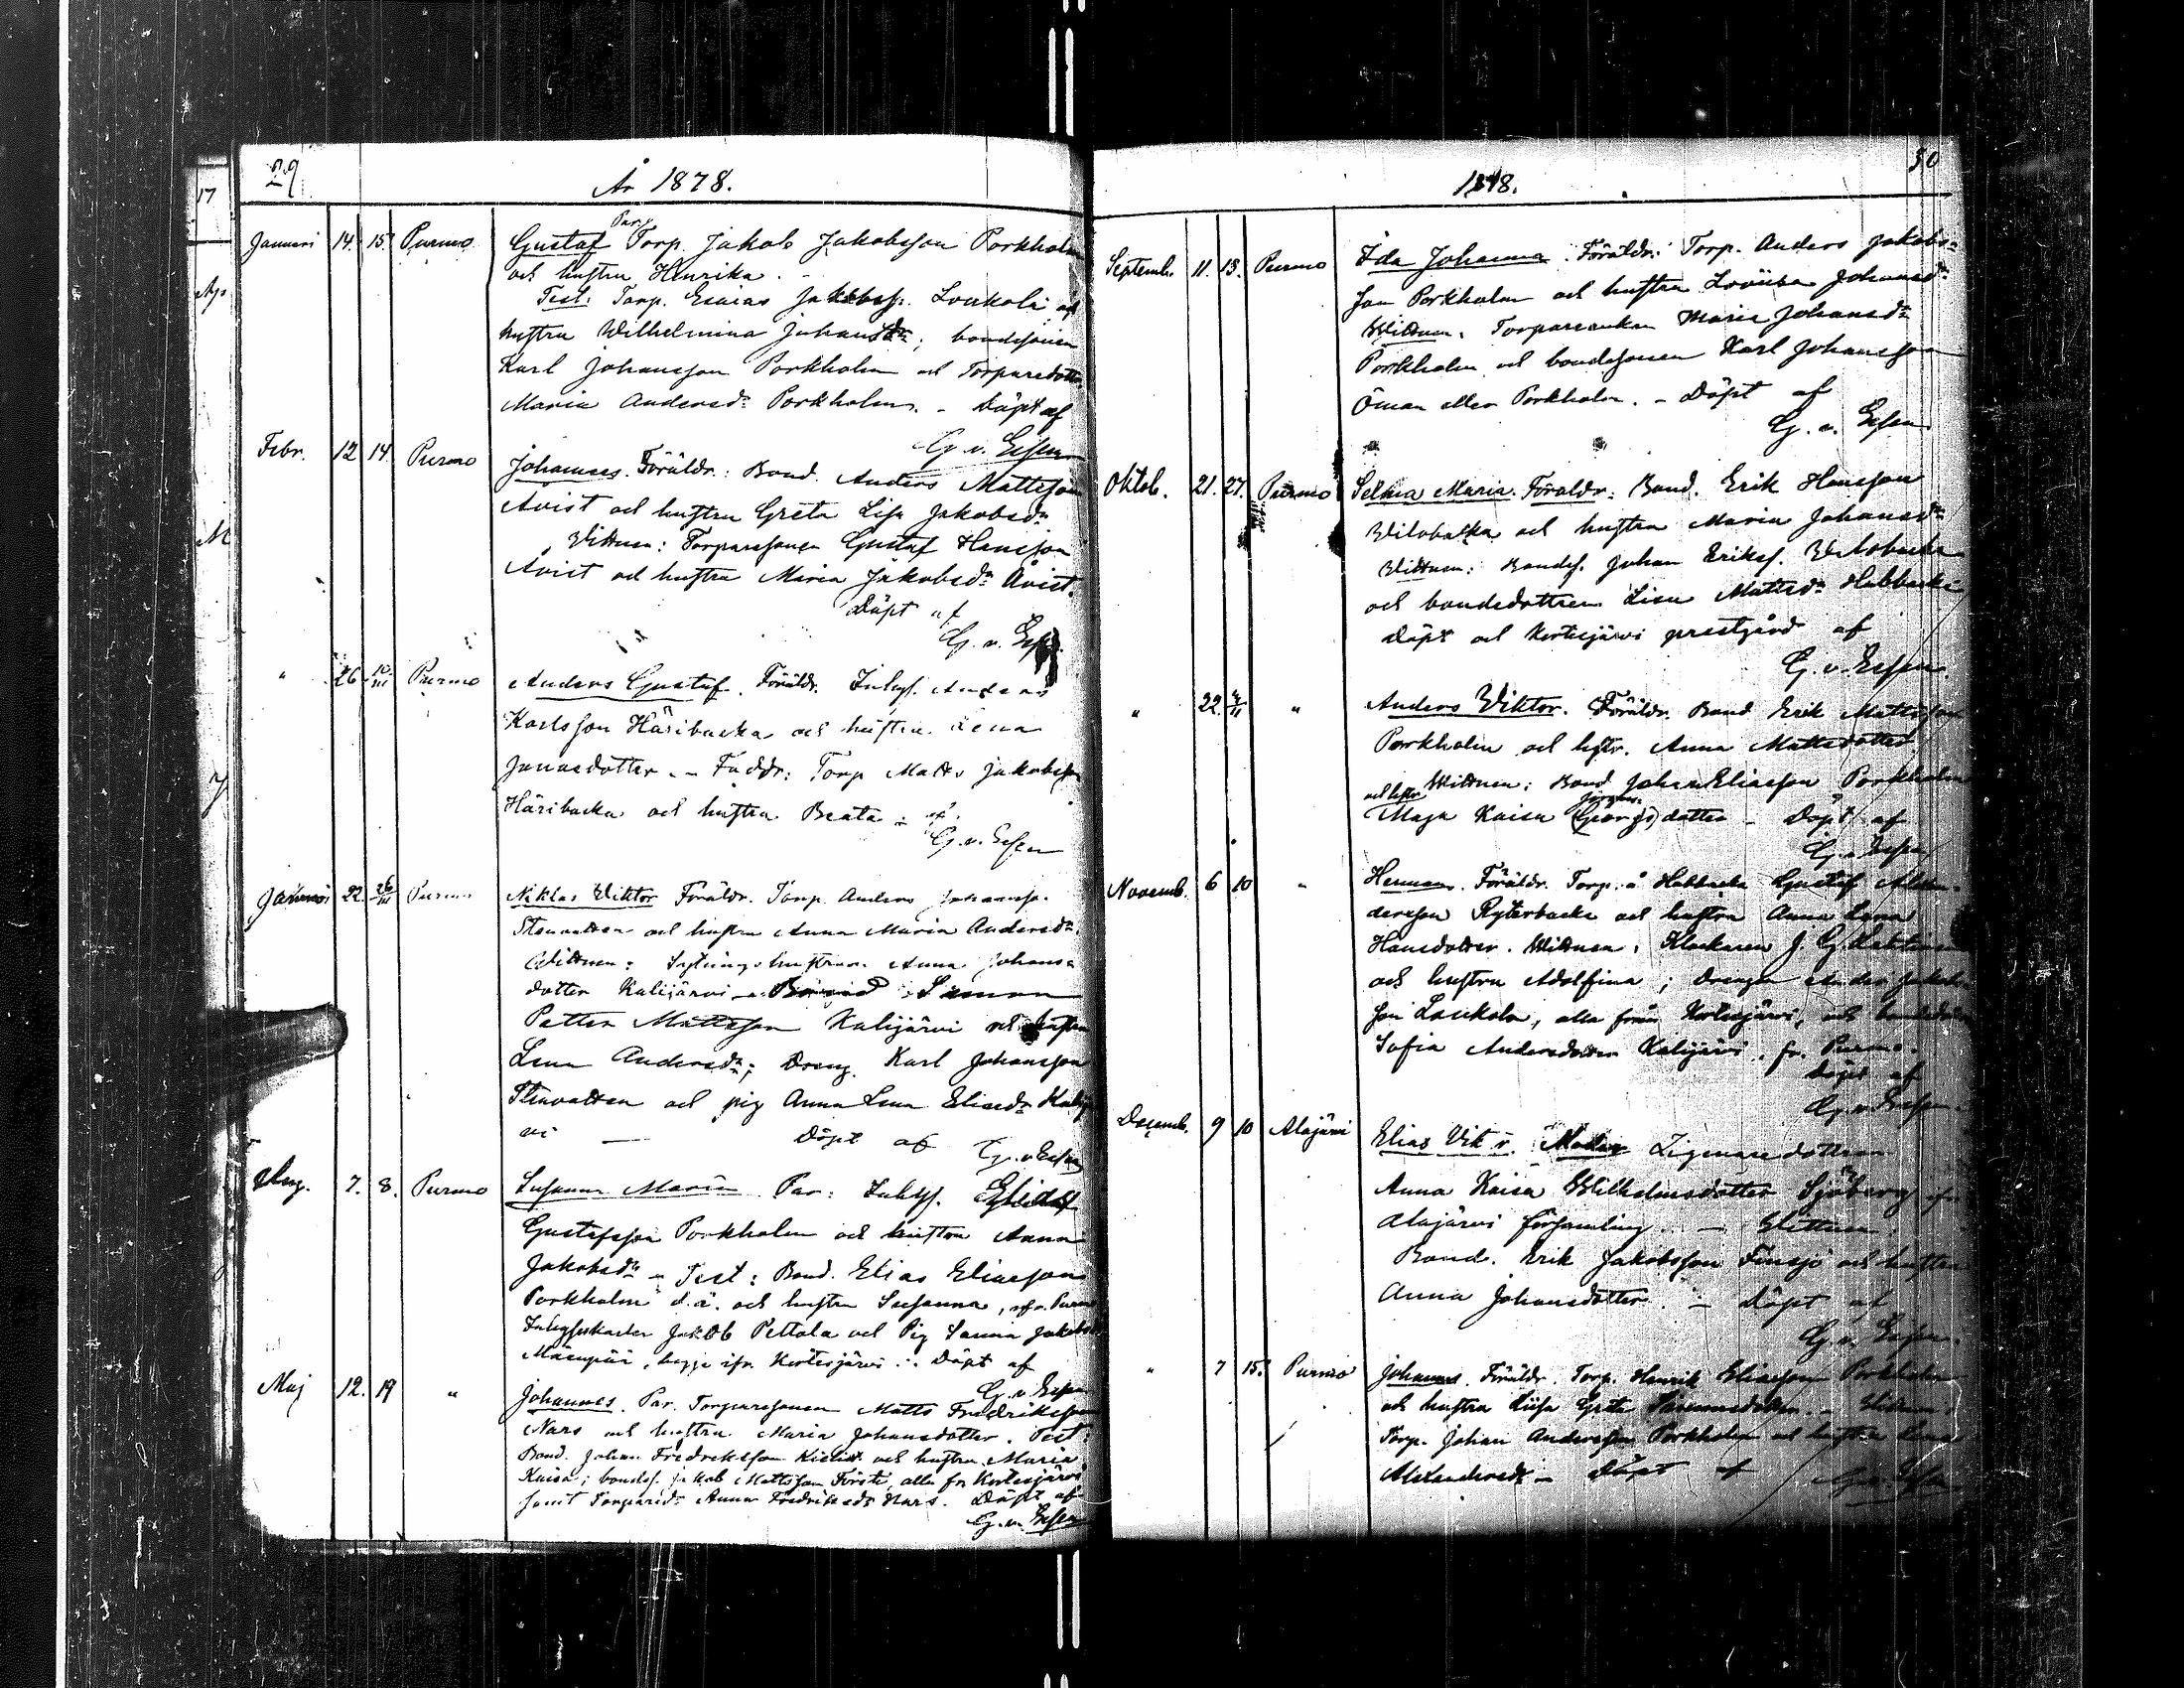 29
År 1878.
Januari 14. 15. Purmo Gustaf Par. Torp. Jakob Jakobsson Porkholm
och hustru Henrika. -
Test. Torp. Esaias Jakobss. Loukola och
hustru Wilhelmina Johansdr; bondesonen
Karl Johansson Porkholm och Torparedottr
Maria Andersdr Porkholm. - Döpt af
G. v. Essen
Febr. 12 14 Purmo Johannes. Föräldr: Bond. Anders Mattsson
Åvist och hustru Greta Lisa Jakobsdr
Vittnen: Torparesonen Gustaf Hansson
Åvist och hustru Maria Jakobsdr Åvist.
Döpt af
G. v. Essen
" 26 10/III Purmo Anders Gustaf. Föräldr. Inhys. Anders
Karlsson Häribacka och hustru Lena
Jonasdotter. - Faddr: Torp Matts Jakobsson
Häribacka och hustru Beata - af
G. v. Essen
Januari 22 26/III Purmo Niklas Viktor Föräldr. Torp. Anders Johanss.
och hustru Anna Maria Andersdr.
Vittnen: Sytningshustrun Anna Johans
dotter Kalijärvi Simon
Petter Mattsson Kalijärvi och hustru
Lena Andersdr; Dreng. Karl Johansson
Stenvatten och pig Anna Lena Eliasdr Kalijär
vi — Döpt af G. v. Essen
Aug. 7. 8. Purmo Susanna Maria Par: Inhyss.
Gustafsson Porkholm och hustru Anna
Jakobsdr - Test: Bond. Elias Eliasson
Porkholm d.ä. och hustru Susanna, ifr. Purmo
Jakob Pettola och Pig Sanna Jakobsdr
Mäenpää, begge ifr. Kortesjärvi. Döpt af
G. v. Essen
Maj 12. 19 " Johannes. Par. Torparesonen Matts Fredriksson
Nars och hustru Maria Johansdotter. Test:
Bond. Johan Fredriksson och hustru Maria
Kaisa; bondes. Jakob Mattsson Försti, alla fr Kortesjärvi
samt Torpared. Anna Fredriksdr Nars. Döpt af
G. v. Essen
30
1878.
Septemb. 11. 13. Purmo Ida Johanna. Föräldr: Torp. Anders Jakobs-
son Porkholm och hustru Lovisa Johansdr
Vittnen. Torpareenkan Maria Johansdr
Porkholm och bondesonen Karl Johansson
Öman eller Porkholm. - Döpt af
G. v. Essen
Oktob. 21. 27. Purmo Selma Maria. Föräldr: Bond. Erik Hansson
Wilobacka och hustru Maria Johansdr
Vittnen: Bondes. Johan Erikss. Wilobacka
och bondedottren Lisa Mattsdr Habbacka
Döpt och Kortesjärvi prestgård af
G. v. Essen.
" 22. " Anders Viktor. Föräldr. Bond Erik Mattsson
Porkholm och hstr. Anna Mattsdotter
Vittnen: Bond Johan Eliasson Porkholm
och hstr Maja Kaisa (Georgs) dotter - Döpt af
G. v. Essen
Novemb. 6 10 " Herman. Föräldr. Torp. å Habbacka Gustaf Alexan-
dersson Ryterbacka och hustru Anna Lena
Hansdotter. Vittnen: Klockaren J. G.
och hustru Adolfina; Drengen Anders Jakobs
son Laukola, alla från Kortesjärvi, och
Sofia Andersdotter Kalijärvi. fr. Purmo.
Döpt af
G. v. Essen
Decemb. 9 10 Alajärvi Elias Viktor. Moder
Anna Kaisa Wilhelmsdotter Sjöberg ifrn
Alajärvi församling. — Vittnen
Bond. Erik Jakobsson Finsjö och hustru
Anna Johansdotter. - Döpt af
G. v. Essen.
" 7 15. Purmo Johannes. Föräldr. Torp. Henrik Eliasson Porkholm
och hustru Lisa Greta - Vittnen:
Torp. Johan Andersson Porkholm och hustru Lena
Alexandersdr - Döpt af G. v. Essen